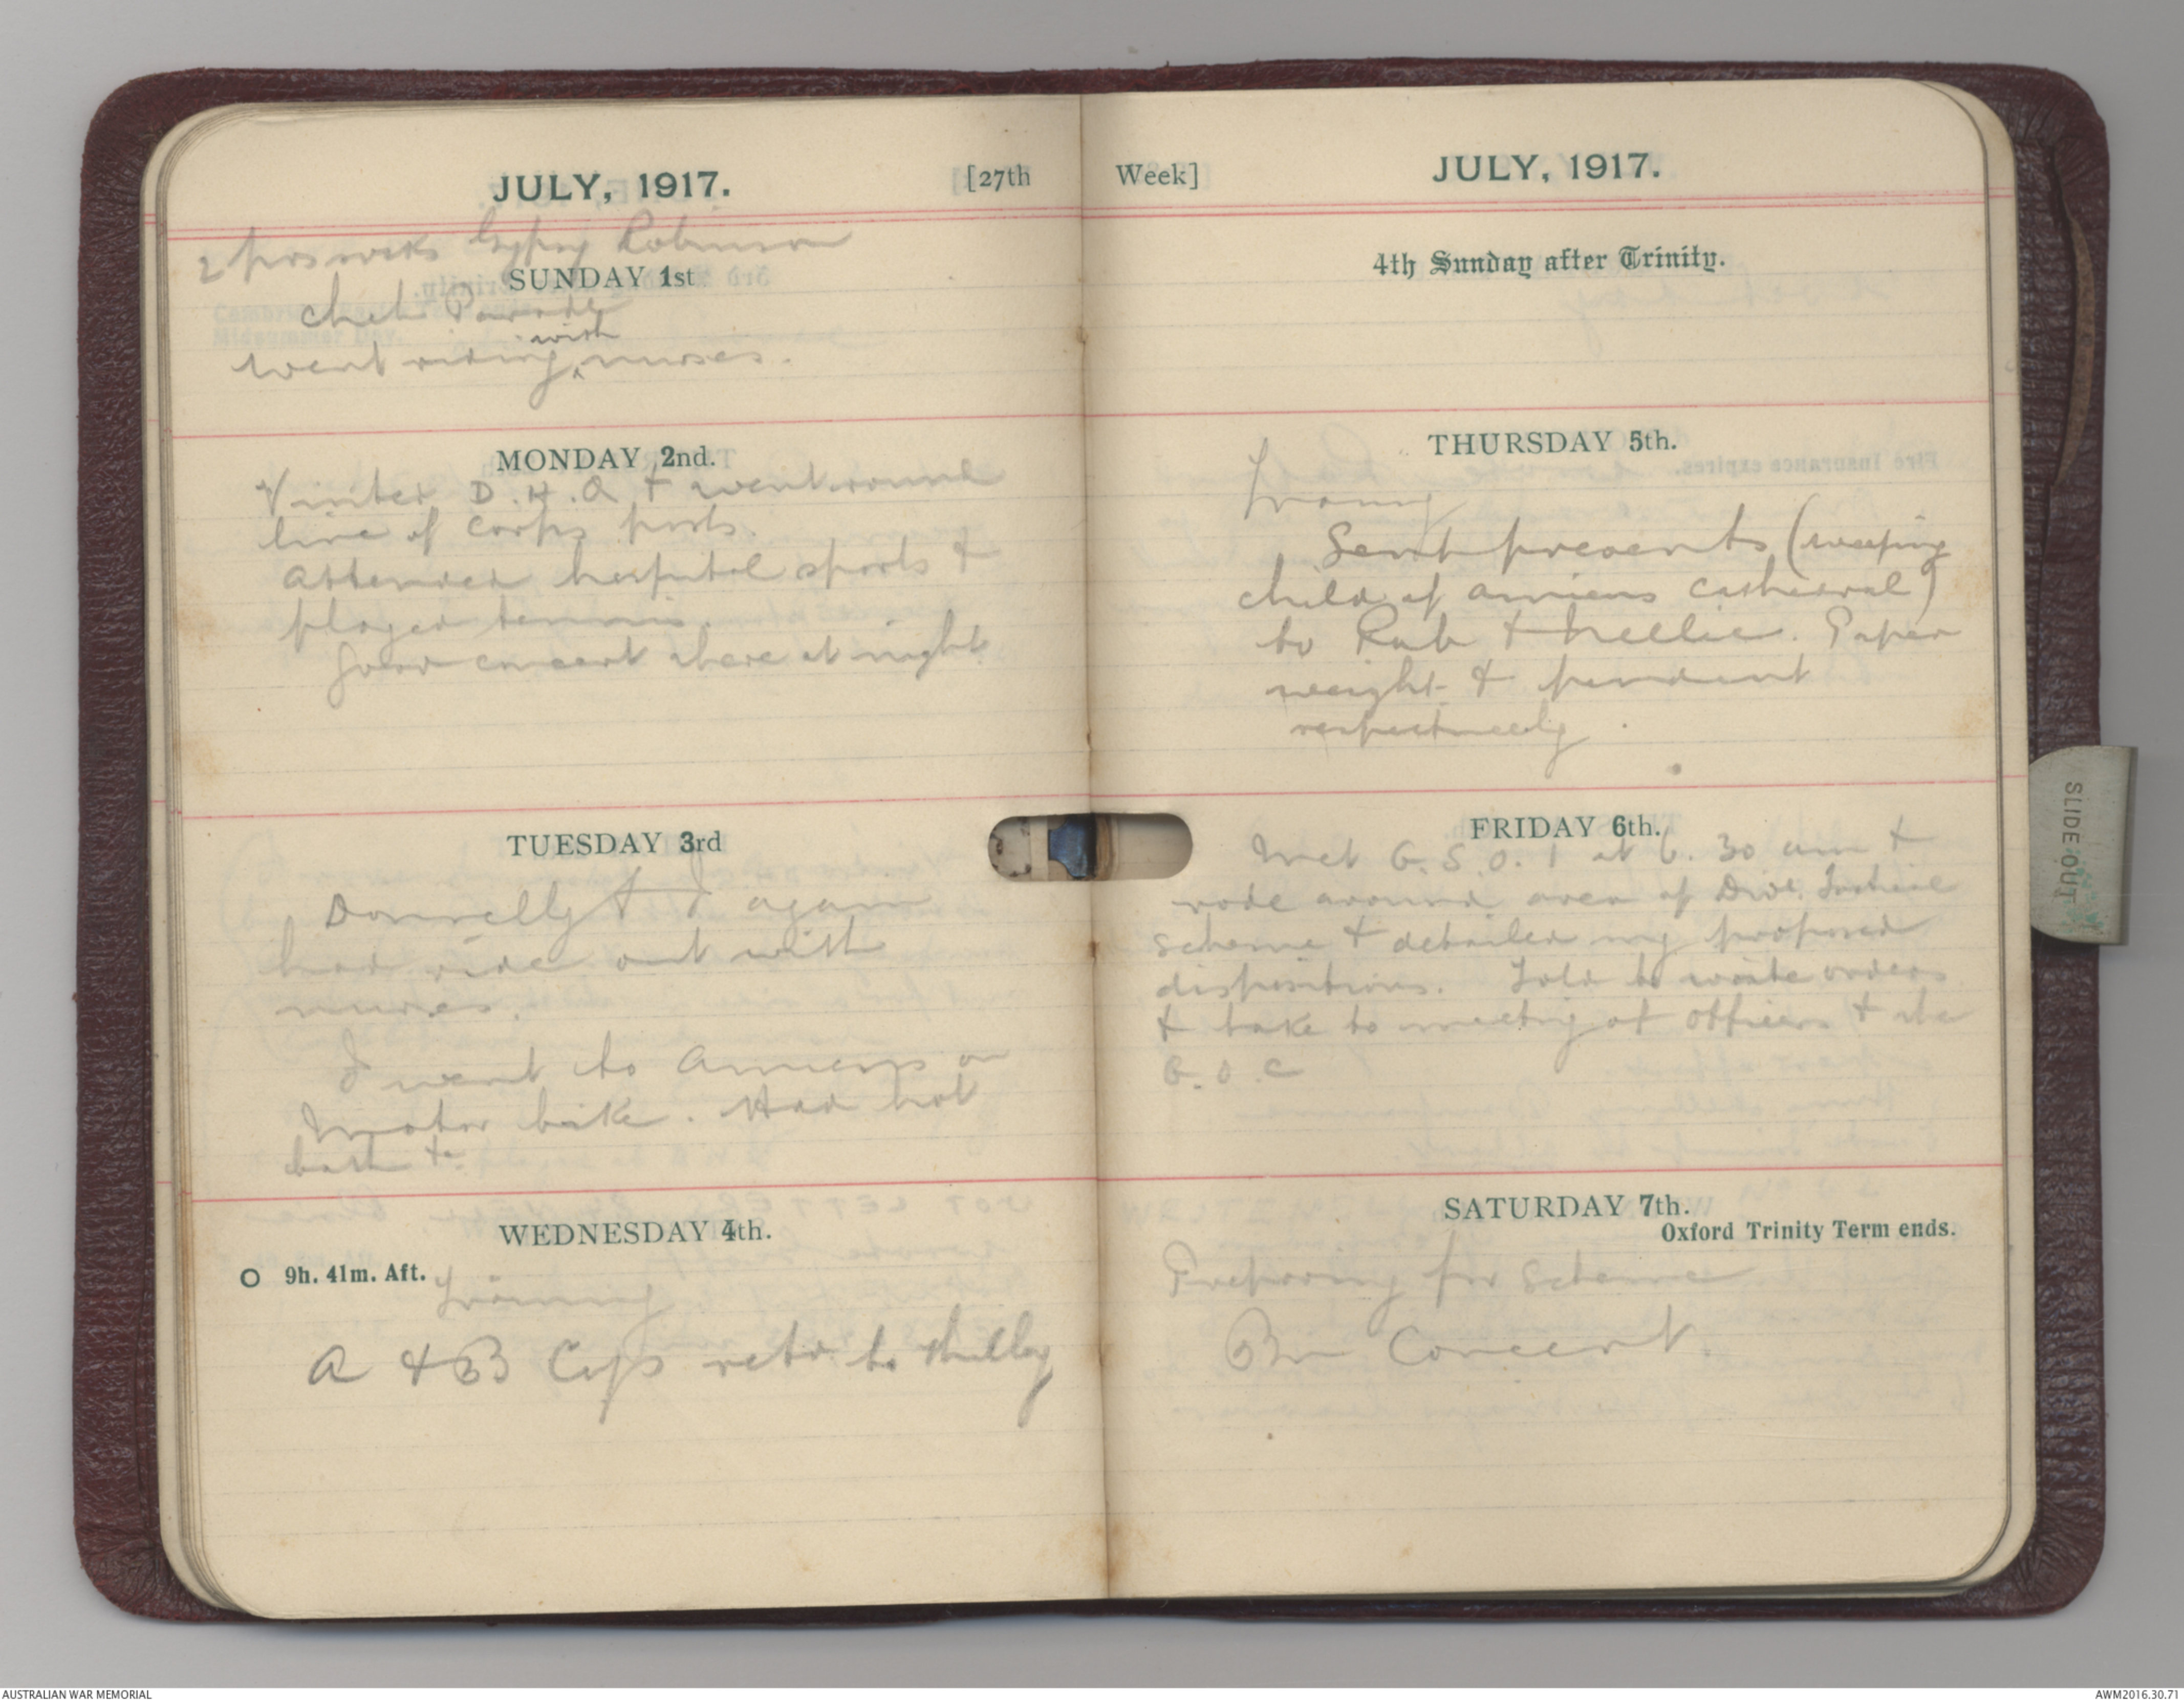 JULY, 1917. [27th
2 prs socks Gypsy Robinson
SUNDAY 1st
Chch Parade
with
went riding ^ nurses.
MONDAY 2nd.
Visited D.H.Q & went round
line of Corps posts.
Attended hospital sports &
played tennis.
Good concert there at night
TUESDAY 3rd
Donnelly & I again
had ride out with
nurses.
I went to Amiens on
Motor bike. Had hot
bath &c
WEDNESDAY 4th.
O 9h. 41m. Aft.
Training
A & B Coys retd. to
Week] JULY, 1917.
4th Sunday after Trinity.
THURSDAY 5th.
Training
Sent presents (weeping
child of Amiens Cathedral)
to Rub & Nellie. Paper
weight & pendant
respectively.
FRIDAY 6th.
Met G.S.O.1 at 6.30 am &
rode around area of Divl. Tactical
scheme & detailed my proposed
dispositions. Told to write orders
& take to meeting of officers & the
G.O.C
SATURDAY 7th.
Oxford Trinity Term ends.
Preparing for Scheme
Bn Concert.
SLIDE OUT
AUSTRALIAN WAR MEMORIAL
AWM2016.30.71